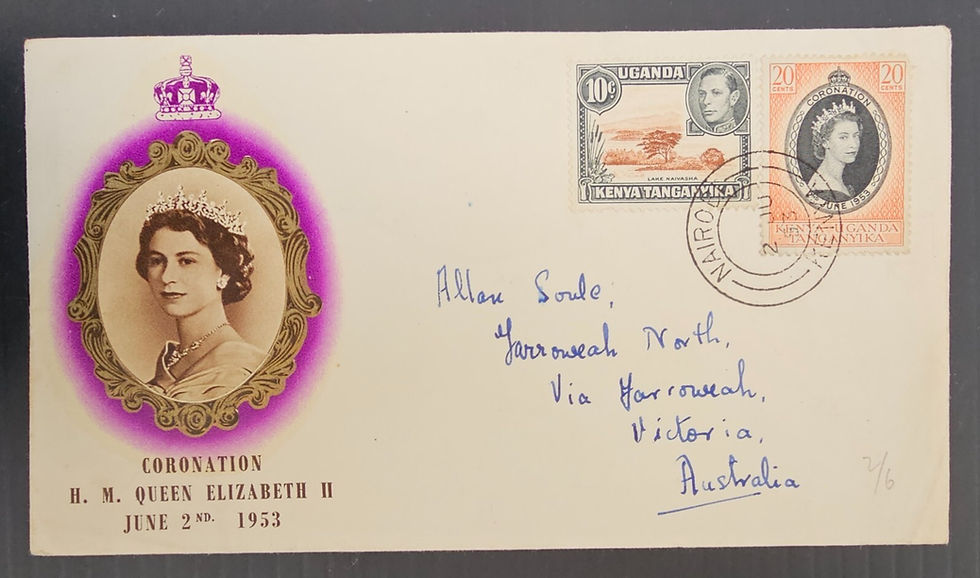 UGANDA
10c
LAKE NAIVASHA
KENYA TANGANYIKA
20 CENTS
20 CENTS
CORONATION
2 JUNE 1953
KENYA UGANDA
TANGANYIKA
NAIROBI
KENYA
2 JU
53
Allan Soule,
Yarroweah North,
Via Yarroweah,
Victoria,
Australia
2/6
CORONATION
H. M. QUEEN ELIZABETH II
JUNE 2ND. 1953